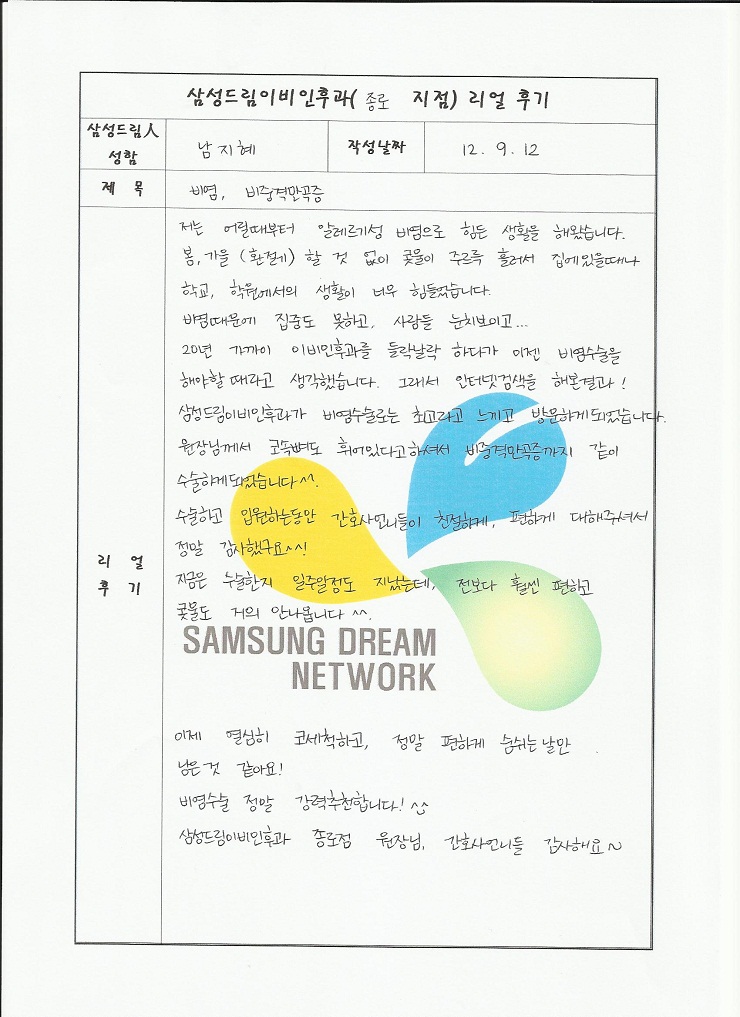 삼성드림이비인후과( 종로 지점) 리얼 후기
삼성드림人 성함
남지혜
작성날짜
12. 9. 12
제 목
비염, 비중격만곡증
리 얼 후 기
저는 어릴때부터 알레르기성 비염으로 힘든 생활을 해왔습니다.
봄, 가을 (환절기) 할 것 없이 콧물이 주르륵 흘러서 집에있을때나
학교, 학원에서의 생활이 너무 힘들었습니다.
비염때문에 집중도 못하고, 사람들 눈치보이고...
20년 가까이 이비인후과를 들락날락 하다가 이젠 비염수술을
해야할 때라고 생각했습니다. 그래서 인터넷검색을 해본결과!
삼성드림이비인후과가 비염수술로는 최고라고 느끼고 방문하게되었습니다.
원장님께서 코속뼈도 휘어있다고하셔서 비중격만곡증까지 같이
수술하게되었습니다^^.
수술하고 입원하는동안 간호사언니들이 친절하게, 편하게 대해주셔서
정말 감사했구요^^!
지금은 수술한지 일주일정도 지났는데, 전보다 훨씬 편하고
콧물도 거의 안나옵니다 ^^.
SAMSUNG DREAM
NETWORK
이제 열심히 코세척하고, 정말 편하게 숨쉬는 날만
남은것 같아요!
비염수술 정말 강력추천합니다! ^^
삼성드림이비인후과 종로점 원장님, 간호사언니들 감사해요~